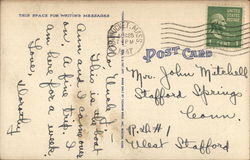 THIS SPACE FOR WRITING MESSAGES
Hello Uncle
This is of boat
Ann and I came over
on. A fine trip. I
am here for a week.
Love,
Dorothy
POST CARD
Mr. John Mitchell
Stafford Springs
Conn.
R.D. #1
West Stafford